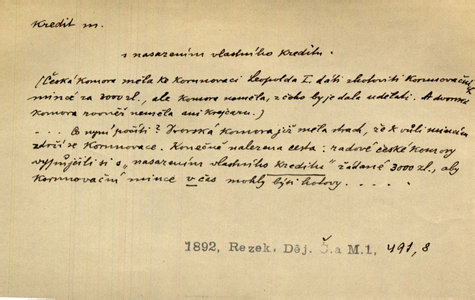 Kredit m.
s nasazením vlastního kreditu.
(Česká komora měla ke korunovaci Leopolda I. dáti zhotoviti korunovační
mince za 3000 zl., ale komora neměla, z čeho by je dala udělati. A dvorská
komora rovněž neměla ani krejcaru.)
.... Co nyní počíti? Dvorská komora již měla strach, že k vůli mincím
zdrží se korunovace. Konečně nalezena cesta: radové české komory
vypůjčili si s „nasazením vlastního kreditu" žádané 3000 zl., aby
korunovační mince v čas mohly býti hotovy. ....
1892, Rezek. Děj. Č. a M. 1, 491, 8